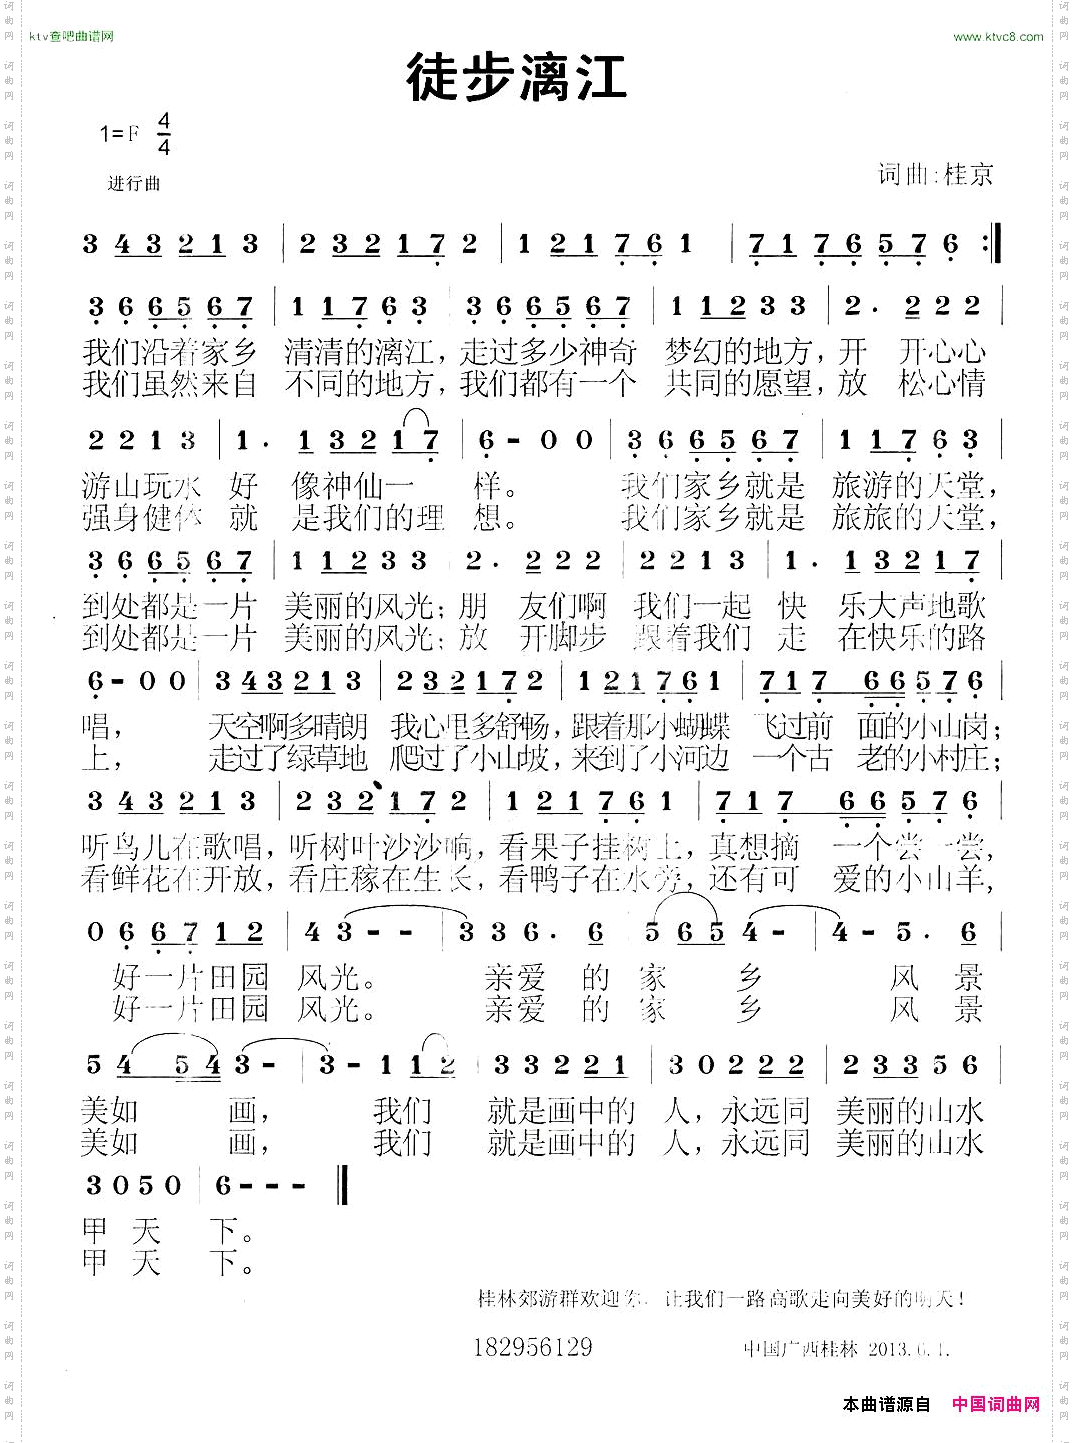 ktv查吧曲谱网
www.ktvc8.com
徒步漓江
1=F 4/4
进行曲
词曲:桂京
3 4 3 2 1 3 | 2 3 2 1 7 2 | 1 2 1 7 6 1 | 7 1 7 6 5 7 6 :‖
3 6 6 5 6 7 | 1 1 7 6 3 | 3 6 6 5 6 7 | 1 1 2 3 3 | 2 . 2 2 2 |
我们沿着家乡 清清的漓江，走过多少神奇 梦幻的地方，开 开心心
我们虽然来自 不同的地方，我们都有一个 共同的愿望，放 松心情
2 2 1 3 | 1 . 1 3 2 1 7 | 6 - 0 0 | 3 6 6 5 6 7 | 1 1 7 6 3 |
游山玩水 好 像神仙一 样。 我们家乡就是 旅游的天堂，
强身健体 就 是我们的理 想。 我们家乡就是 旅旅的天堂，
3 6 6 5 6 7 | 1 1 2 3 3 | 2 . 2 2 2 | 2 2 1 3 | 1 . 1 3 2 1 7 |
到处都是一片 美丽的风光；朋 友们啊 我们一起 快 乐大声地歌
到处都是一片 美丽的风光；放 开脚步 跟着我们 走 在快乐的路
6 - 0 0 | 3 4 3 2 1 3 | 2 3 2 1 7 2 | 1 2 1 7 6 1 | 7 1 7 6 6 5 7 6 |
唱， 天空啊多晴朗 我心里多舒畅，跟着那小蝴蝶 飞过前 面的小山岗；
上， 走过了绿草地 爬过了小山坡，来到了小河边 一个古 老的小村庄；
3 4 3 2 1 3 | 2 3 2 1 7 2 | 1 2 1 7 6 1 | 7 1 7 6 6 5 7 6 |
听鸟儿在歌唱，听树叶沙沙响，看果子挂树上，真想摘 一个尝一尝，
看鲜花在开放，看庄稼在生长，看鸭子在水旁，还有可 爱的小山羊，
0 6 6 7 1 2 | 4 3 - - | 3 3 6 . 6 | 5 6 5 4 - | 4 - 5 . 6 |
好一片田园 风光。 亲爱 的 家 乡 风 景
好一片田园 风光。 亲爱 的 家 乡 风 景
5 4 5 4 3 - | 3 - 1 1 2 | 3 3 2 2 1 | 3 0 2 2 2 | 2 3 3 5 6 |
美如 画， 我们 就是画中的 人，永远同 美丽的山水
美如 画， 我们 就是画中的 人，永远同 美丽的山水
3 0 5 0 | 6 - - - ‖
甲 天 下。
甲 天 下。
桂林郊游群欢迎你，让我们一路高歌走向美好的明天！
182956129
中国广西桂林 2013.6.1.
本曲谱源自 中国词曲网